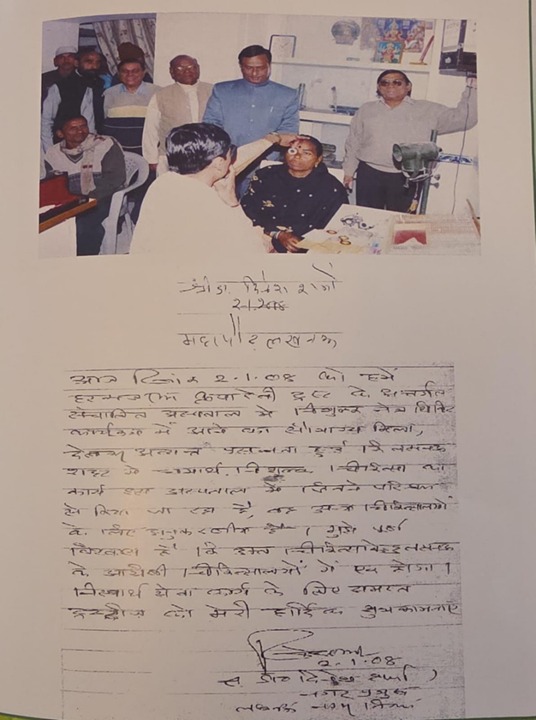 श्री डा. दिनेश शर्मा
2-1-2008
महापौर लखनऊ
आज दिनांक 2.1.08 को हमें
ट्रस्ट के अन्तर्गत
संचालित अस्पताल में निशुल्क नेत्र शिविर
कार्यक्रम में आने का सौभाग्य मिला,
देखकर अत्यन्त प्रसन्नता हुई कि लखनऊ
शहर में निशुल्क चिकित्सा का
कार्य इस अस्पताल में जितने परिश्रम
से किया जा रहा है, वह अन्य चिकित्सालयों
के लिए अनुकरणीय है। मुझे पूर्ण
विश्वास है कि उक्त चिकित्सालय लखनऊ
के अग्रणी चिकित्सालयों में एक होगा।
निस्वार्थ सेवा कार्य के लिए समस्त
को मेरी हार्दिक शुभकामनाएँ
2.1.08
डा० दिनेश शर्मा)
नगर प्रमुख
लखनऊ नगर निगम